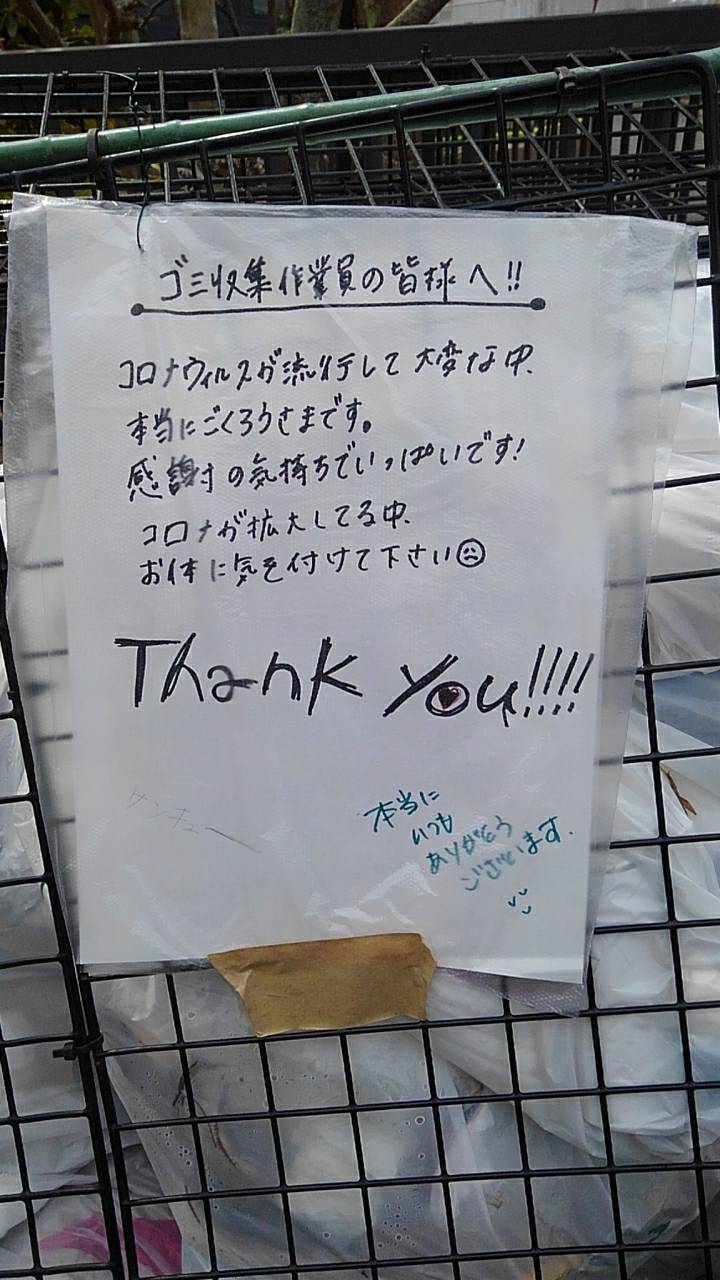 ゴミ収集作業員の皆様へ!!
コロナウィルスが流行して大変な中、
本当にごくろうさまです。
感謝の気持ちでいっぱいです!
コロナが拡大してる中、
お体に気を付けて下さい
Thank you!!!!
サンキュー
本当に
いつも
ありがとう
ございます.